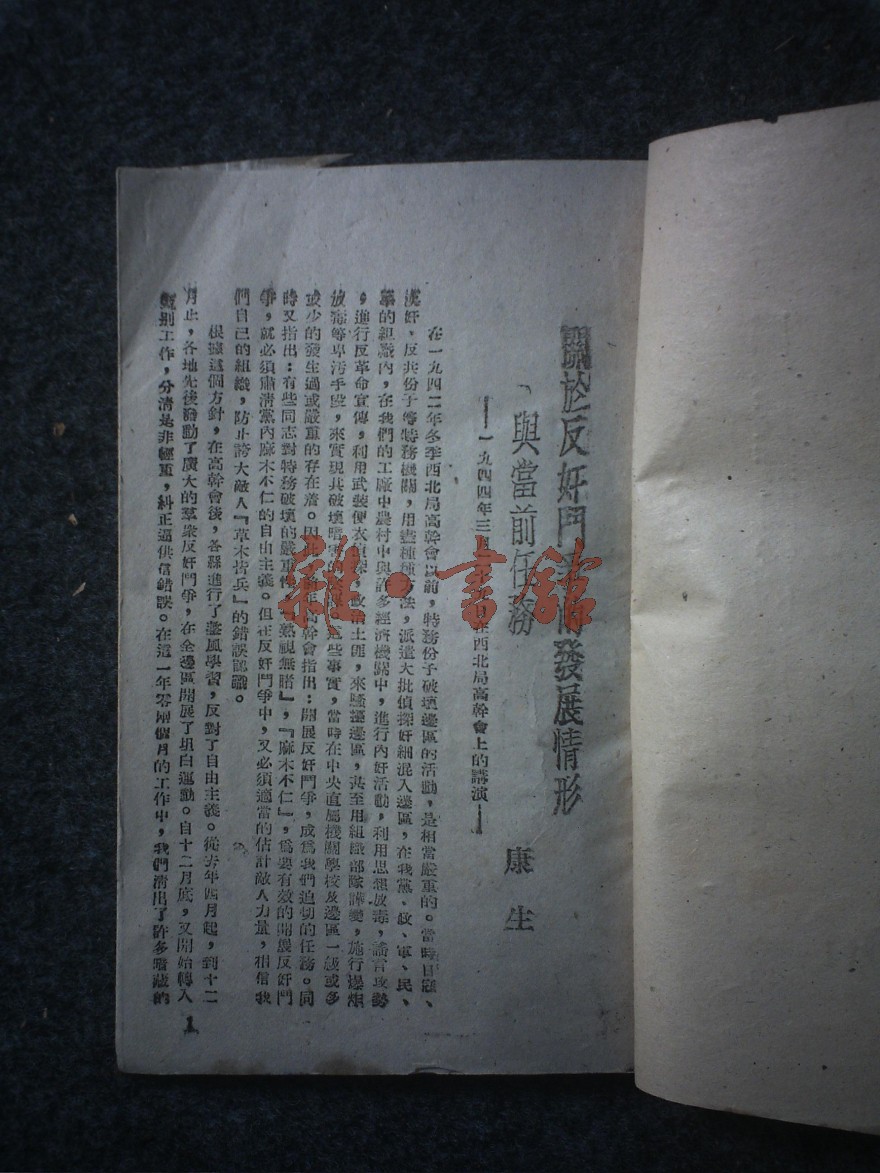 關於反奸鬥爭的發展情形
與當前任務
——一九四四年三月 在西北局高幹會上的講演——
康生
在一九四二年冬季西北局高幹會以前,特務份子破壞邊區的活動,是相當嚴重的。當時日寇、
漢奸,反共份子等特務機關,用盡種種方法,派遣大批偵探奸細混入邊區,在我黨、政、軍、民、
的組織內,在我們的工廠中農村中與許多經濟機關中,進行內奸活動,利用思想放毒,謠言攻勢
,進行反革命宣傳,利用武裝便衣偵探,政治土匪,來騷擾邊區,甚至用組織部隊譁變,施行爆炸
放毒等卑污手段,來實現其破壞 這些事實,當時在中央直屬機關學校及邊區一級或多
或少的發生過或嚴重的存在着。因此 高幹會指出:開展反奸鬥爭,成爲我們迫切的任務。同
時又指出:有些同志對特務破壞的嚴重性『熟視無睹』,『麻木不仁』,爲要有效的開展反奸鬥
爭,就必須肅清黨內麻木不仁的自由主義。但在反奸鬥爭中,又必須適當的估計敵人力量,相信我
們自己的組織,防止誇大敵人『草木皆兵』的錯誤認識。
根據這個方針,在高幹會後,各縣進行了整風學習,反對了自由主義。從去年四月起,到十二
月止,各地先後發動了廣大的羣衆反奸鬥爭,在全邊區開展了坦白運動。自十二月底,又開始轉入
甄別工作,分清是非輕重,糾正逼供信錯誤。在這一年零兩個月的工作中,我們清出了許多暗藏的
1
雜·書館